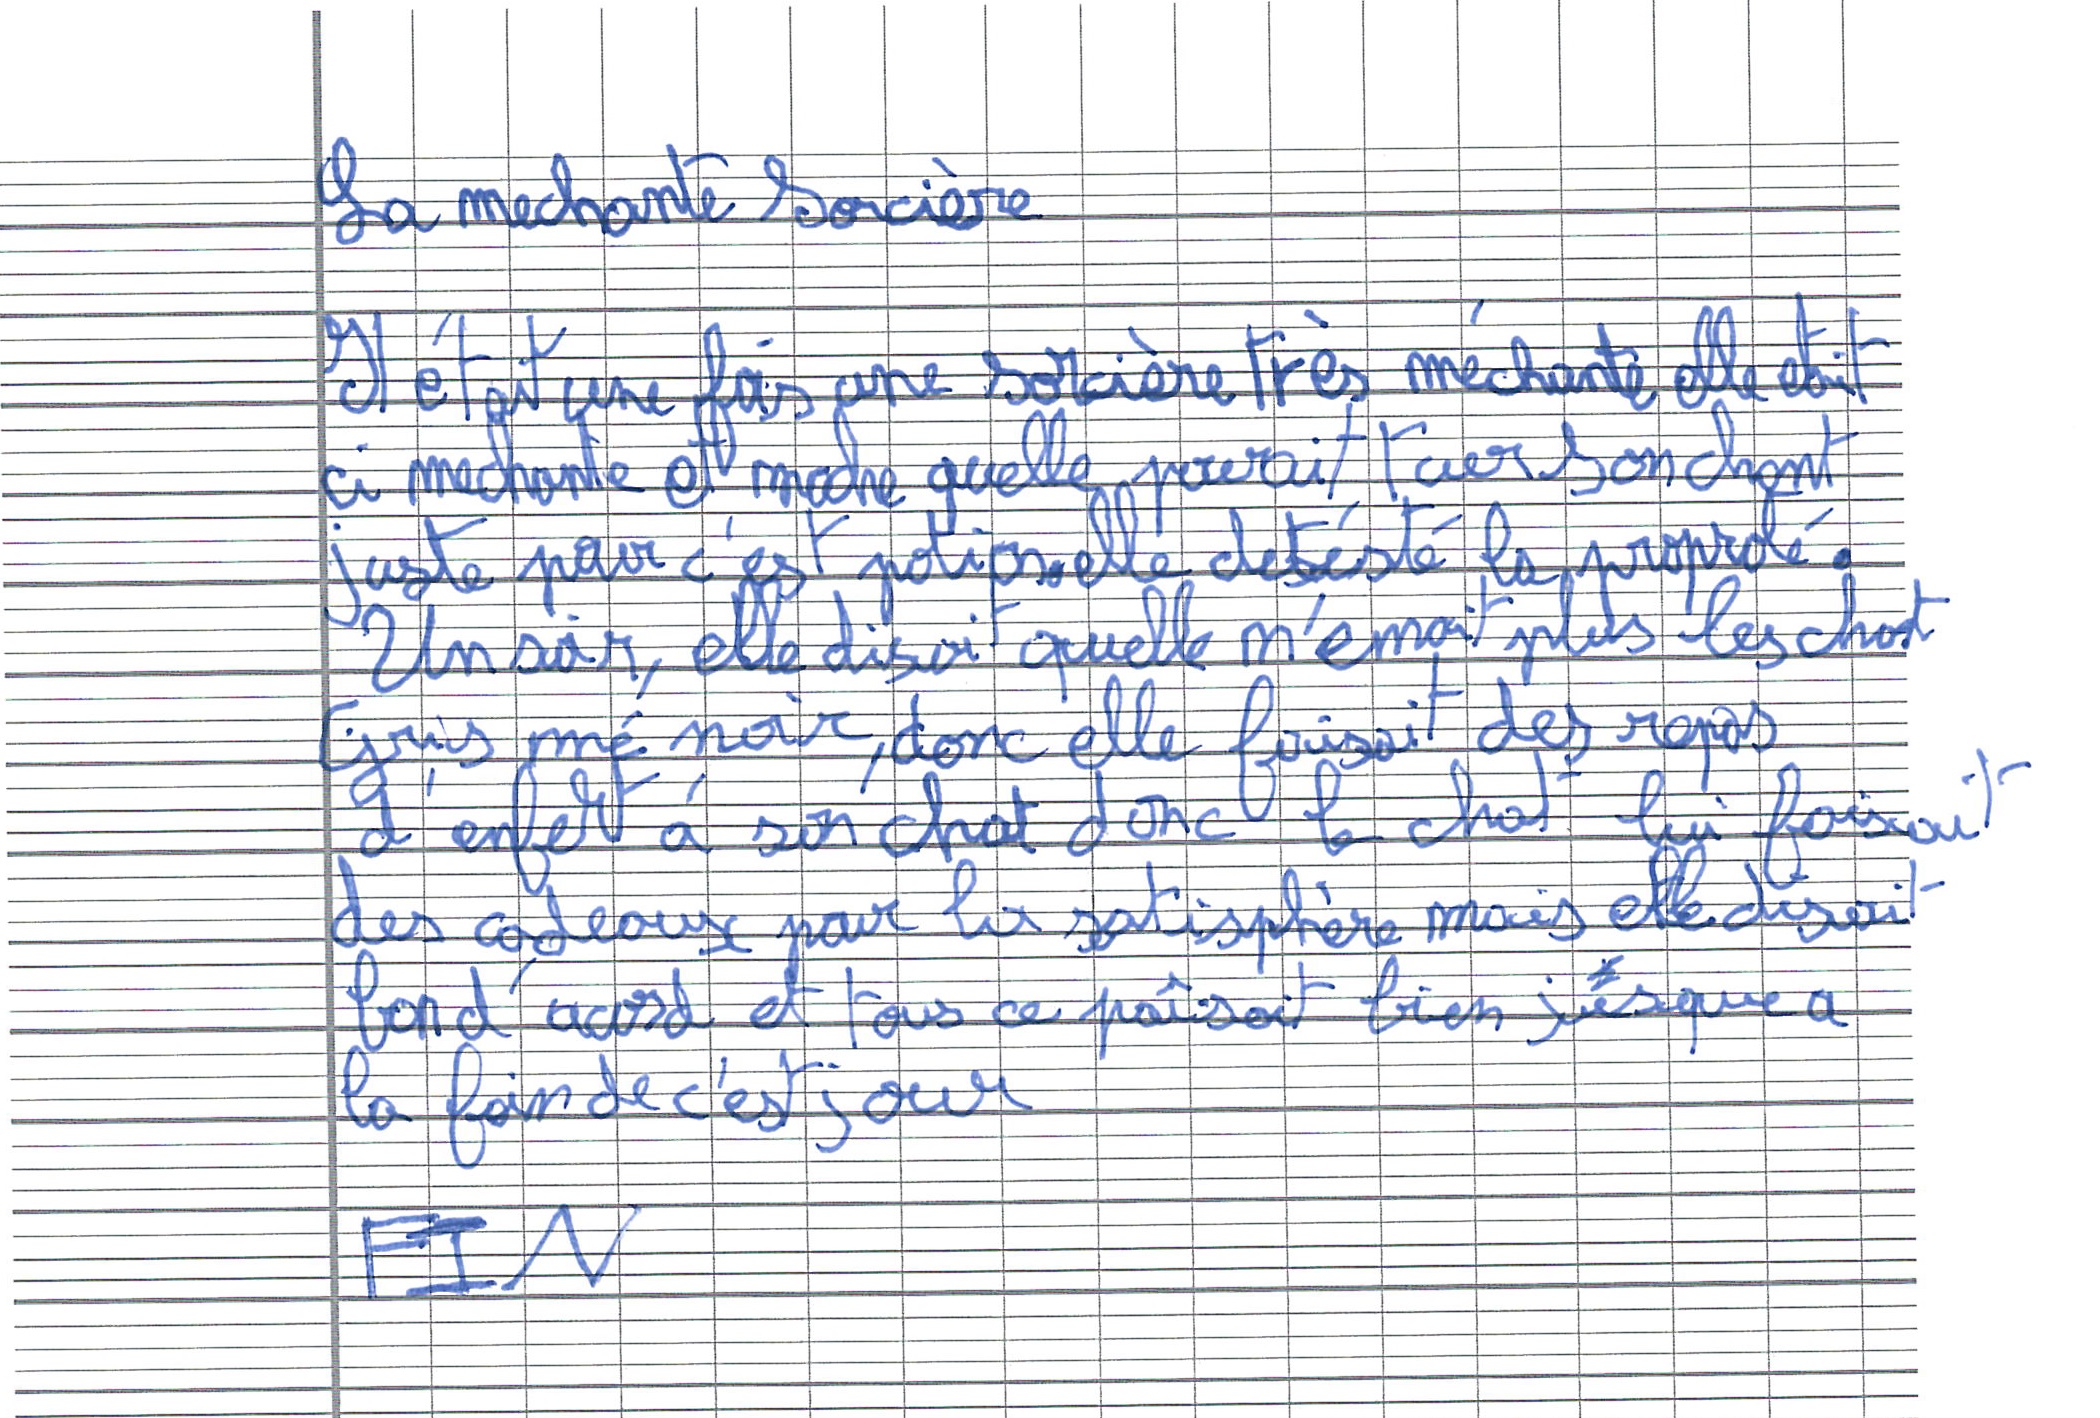 La mechante Sorcière
Il était une fois une sorcière très méchante elle etait
ci mechante et moche quelle pourait tuer son chant
juste pour c'est potions elle detésté la proprolé.
Un soir, elle disait quelle n'émait plus les chat
gris mé noir, donc elle faisait des repas
d'enfert à son chat donc le chat lui faisait
des cadeaux pour lui satisphère mais elle disait
bon d'acord et tous ce paîsait bien jusque a
la foin de c'est jour
FIN